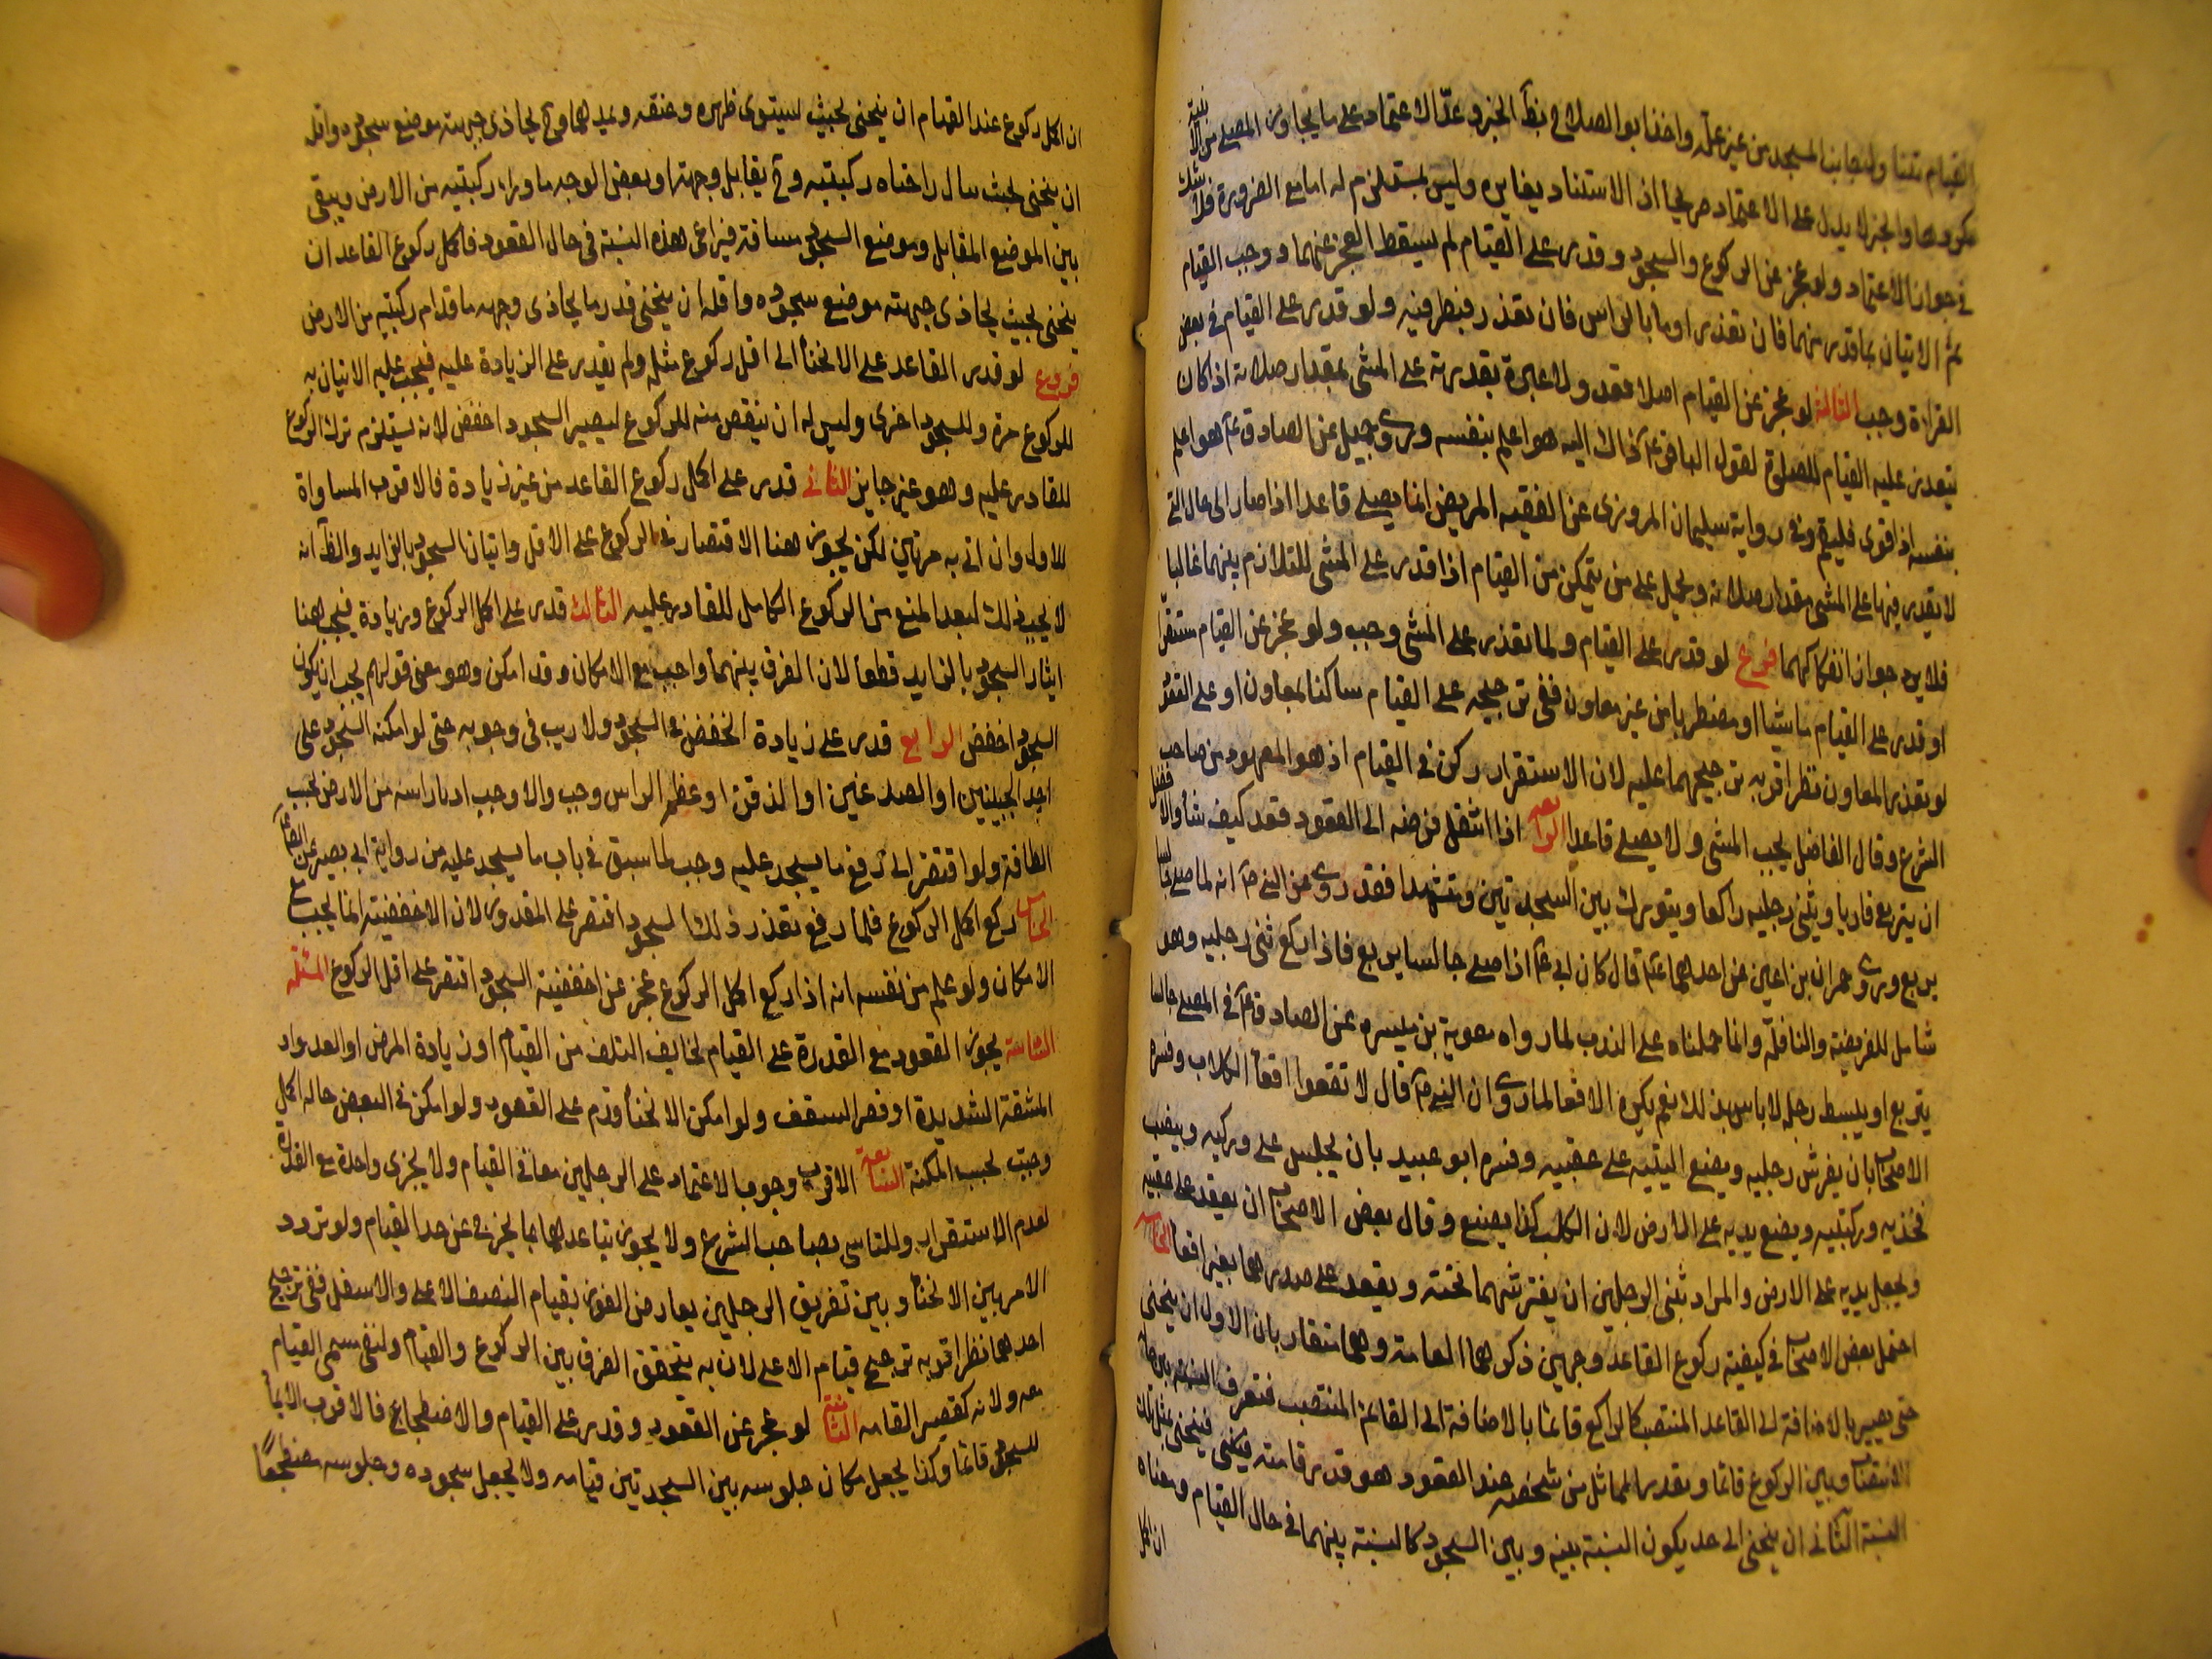 القيام متنا ولجانب المسجد من غير علة واخذ ابو الصلاح بظ الخبر وعد الاعتماد على ما يجاور المصلي من الابنية
مكروها والخبر لا يدل على الاعتماد صريحا اذ الاستناد يغايره وليس بمستلزم له اما مع الضرورة فلا شك
في جواز الاعتماد ولو عجز عن الركوع والسجود وقدر على القيام لم يسقط العجز عنهما ووجب القيام
ثم الاتيان بما قدر منهما فان تعذر اوما بالراس فان تعذر فبطرفيه ولو قدر على القيام في بعض
القراءة وجب الثالثة لو عجز عن القيام اصلا قعد ولا عبرة بقدرته على المشي بمقدار صلاته اذ كان
يتعذر عليه القيام للصلوة لقول الباقر ع ذاك اليه هو اعلم بنفسه وروى جميل عن الصادق ع هو اعلم
بنفسه اذا قوى فليقم وفي رواية سليمان المروزي عن الفقيه المريض انما يصلي قاعدا اذا صار الى حال التي
لا يقدر فيها على المشي مقدار صلاته ويحمل على من يتمكن من القيام اذا قدر على المشي للتلازم بينهما غالبا
فلا يرد جواز انفكاكهما فروع لو قدر على القيام ولما تقدر على المشي وجب ولو عجز عن القيام مستقرا
او قدر على القيام ماشيا او مضطربا من غير معاون ففي ترجيحه على القيام ساكنا بمعاون او على القعود
لو تعذر المعاون نظر اقربه ترجيحهما عليه لان الاستقرار ركن في القيام اذ هو المعهود من صاحب
الشرع وقال الفاضل يجب المشي ولا يصلي قاعدا الرابعة اذا انتقل فرضه الى القعود قعد كيف شاء والافضل
ان يتربع قاريا ويثني رجليه راكعا ويتورك بين السجدتين ومتشهدا فقد روى عن النبي ص انه لما صلى جالسا
يربع وروى حمران بن اعين عن احدهما ع قال كان ابي ع اذا صلى جالسا يربع فاذا ركع ثنى رجليه وهو
شامل للفريضة والنافلة وانما حملناه على الندب لما رواه معوية بن ميسره عن الصادق ع في المصلي جالسا
يتربع او يبسط رجله لا باس بذلك نعم يكره الاقعا لما روى ان النبي ص قال لا تقعوا اقعا الكلاب وفسره
الاصحاب بان يفرش رجليه ويضع اليتيه على عقبيه وفسره ابو عبيد بان يجلس على وركيه وينصب
فخذيه وركبتيه ويضع يديه على الارض لان الكلب كذا يصنع وقال بعض الاصحاب ان يقعد على عقبيه
ويجعل يديه على الارض والمراد بثني الرجلين ان يفترشهما تحته ويقعد على صدرهما بغير اقعا الخامسة
احتمل بعض الاصحاب في كيفية ركوع القاعد وجهين ذكرهما العامة وهما متقاربان الاول ان ينحني
حتى يصير بالاضافة الى القاعد المنتصب كالراكع قائما بالاضافة الى القائم المنتصب فتعرف النسبة بين حالة
الانتصاب وبين الركوع قائما ويقدر المماثل من شخصه عند القعود هو قدر قامته فينحني بمثل تلك
النسبة الثاني ان ينحني الى حد يكون النسبة بينه وبين السجود كالنسبة بينهما في حال القيام ومعناه
ان اكمل
ان اكمل ركوع عند القيام ان ينحني بحيث يستوي ظهره وعنقه ويديهما وح يحاذي جبهته موضع سجوده واقله
ان ينحني بحيث تنال راحتاه ركبتيه وح يقابل وجهه او بعض الوجه ما وراء ركبتيه من الارض ويبقى
بين الموضع المقابل وموضع السجود مسافة فيراعى هذه النسبة في حال القعود فاكمل ركوع القاعد ان
ينحني بحيث يحاذي جبهته موضع سجوده واقله ان ينحني قدر ما يحاذي وجهه ما قدام ركبتيه من الارض
فروع لو قدر القاعد على الانحنا الى اقل ركوع مثله ولم يقدر على الزيادة عليه فيجب عليه الاتيان به
للركوع مرة وللسجود اخرى وليس له ان ينقص منه للركوع ليصير السجود اخفض لانه يستلزم ترك الركوع
للقادر عليه وهو غير جايز الثاني قدر على اكمل ركوع القاعد من غير زيادة فالاقرب المساواة
للاول وان اتى به مرتين لكن يجوز هنا الاقتصار في الركوع على الاقل واتيان السجود بالزايد والظ انه
لا يجب ذلك لبعد المنع من الركوع الكامل للقادر عليه الثالث قدر على اكمل الركوع وزيادة فيجب هنا
ايثار السجود بالزايد قطعا لان الفرق بينهما واجب مع الامكان وقد امكن وهو معنى قولهم يجب ان يكون
السجود اخفض الرابع قدر على زيادة الخفض في السجود ولا ريب في وجوبه حتى لو امكنه السجود على
احد الجبينين او الصدغين او الذقن او عظم الراس وجب والاوجب ادنا راسه من الارض بحسب
الطاقة ولو افتقر الى رفع ما يسجد عليه وجب لما سبق في باب ما يسجد عليه من رواية ابي بصير عن الصادق ع
الخامس ركع اكمل الركوع فلما رفع تعذر ذلك لسجود اقتصر على المقدور لان الاخفضية انما يجب مع
الامكان ولو علم من نفسه انه اذا ركع اكمل الركوع عجز عن اخفضية السجود اقتصر على اقل الركوع المسئلة
السادسة يجوز القعود مع القدرة على القيام لخايف التلف من القيام او زيادة المرض او العدو او
المشقة الشديدة او قصر السقف ولو امكن الانحنا قدم على القعود ولو امكن في البعض حاله اكمل
وجبت بحسب المكنة السابعة الاقرب وجوب الاعتماد على الرجلين معا في القيام ولا يجزى واحدة مع القدرة
لعدم الاستقرار وللتاسي بصاحب الشرع ولا يجوز تباعدهما بما يخرج عن حد القيام ولو تردد
الامر بين الانحنا وبين تفريق الرجلين يعارض الفوز بقيام النصف الاعلى والاسفل ففي ترجيح
احدهما نظر اقربه ترجيح قيام الاعلى لان به يتحقق الفرق بين الركوع والقيام ولبقى مسمى القيام
معه ولانه كقصير القامه الثامنة لو عجز عن القعود وقدر على القيام والاضطجاع فالاقرب الايماء
للسجود قائما وكذا يجعل مكان جلوسه بين السجدتين قيامه ولا يجعل سجوده وجلوسه مضطجعا